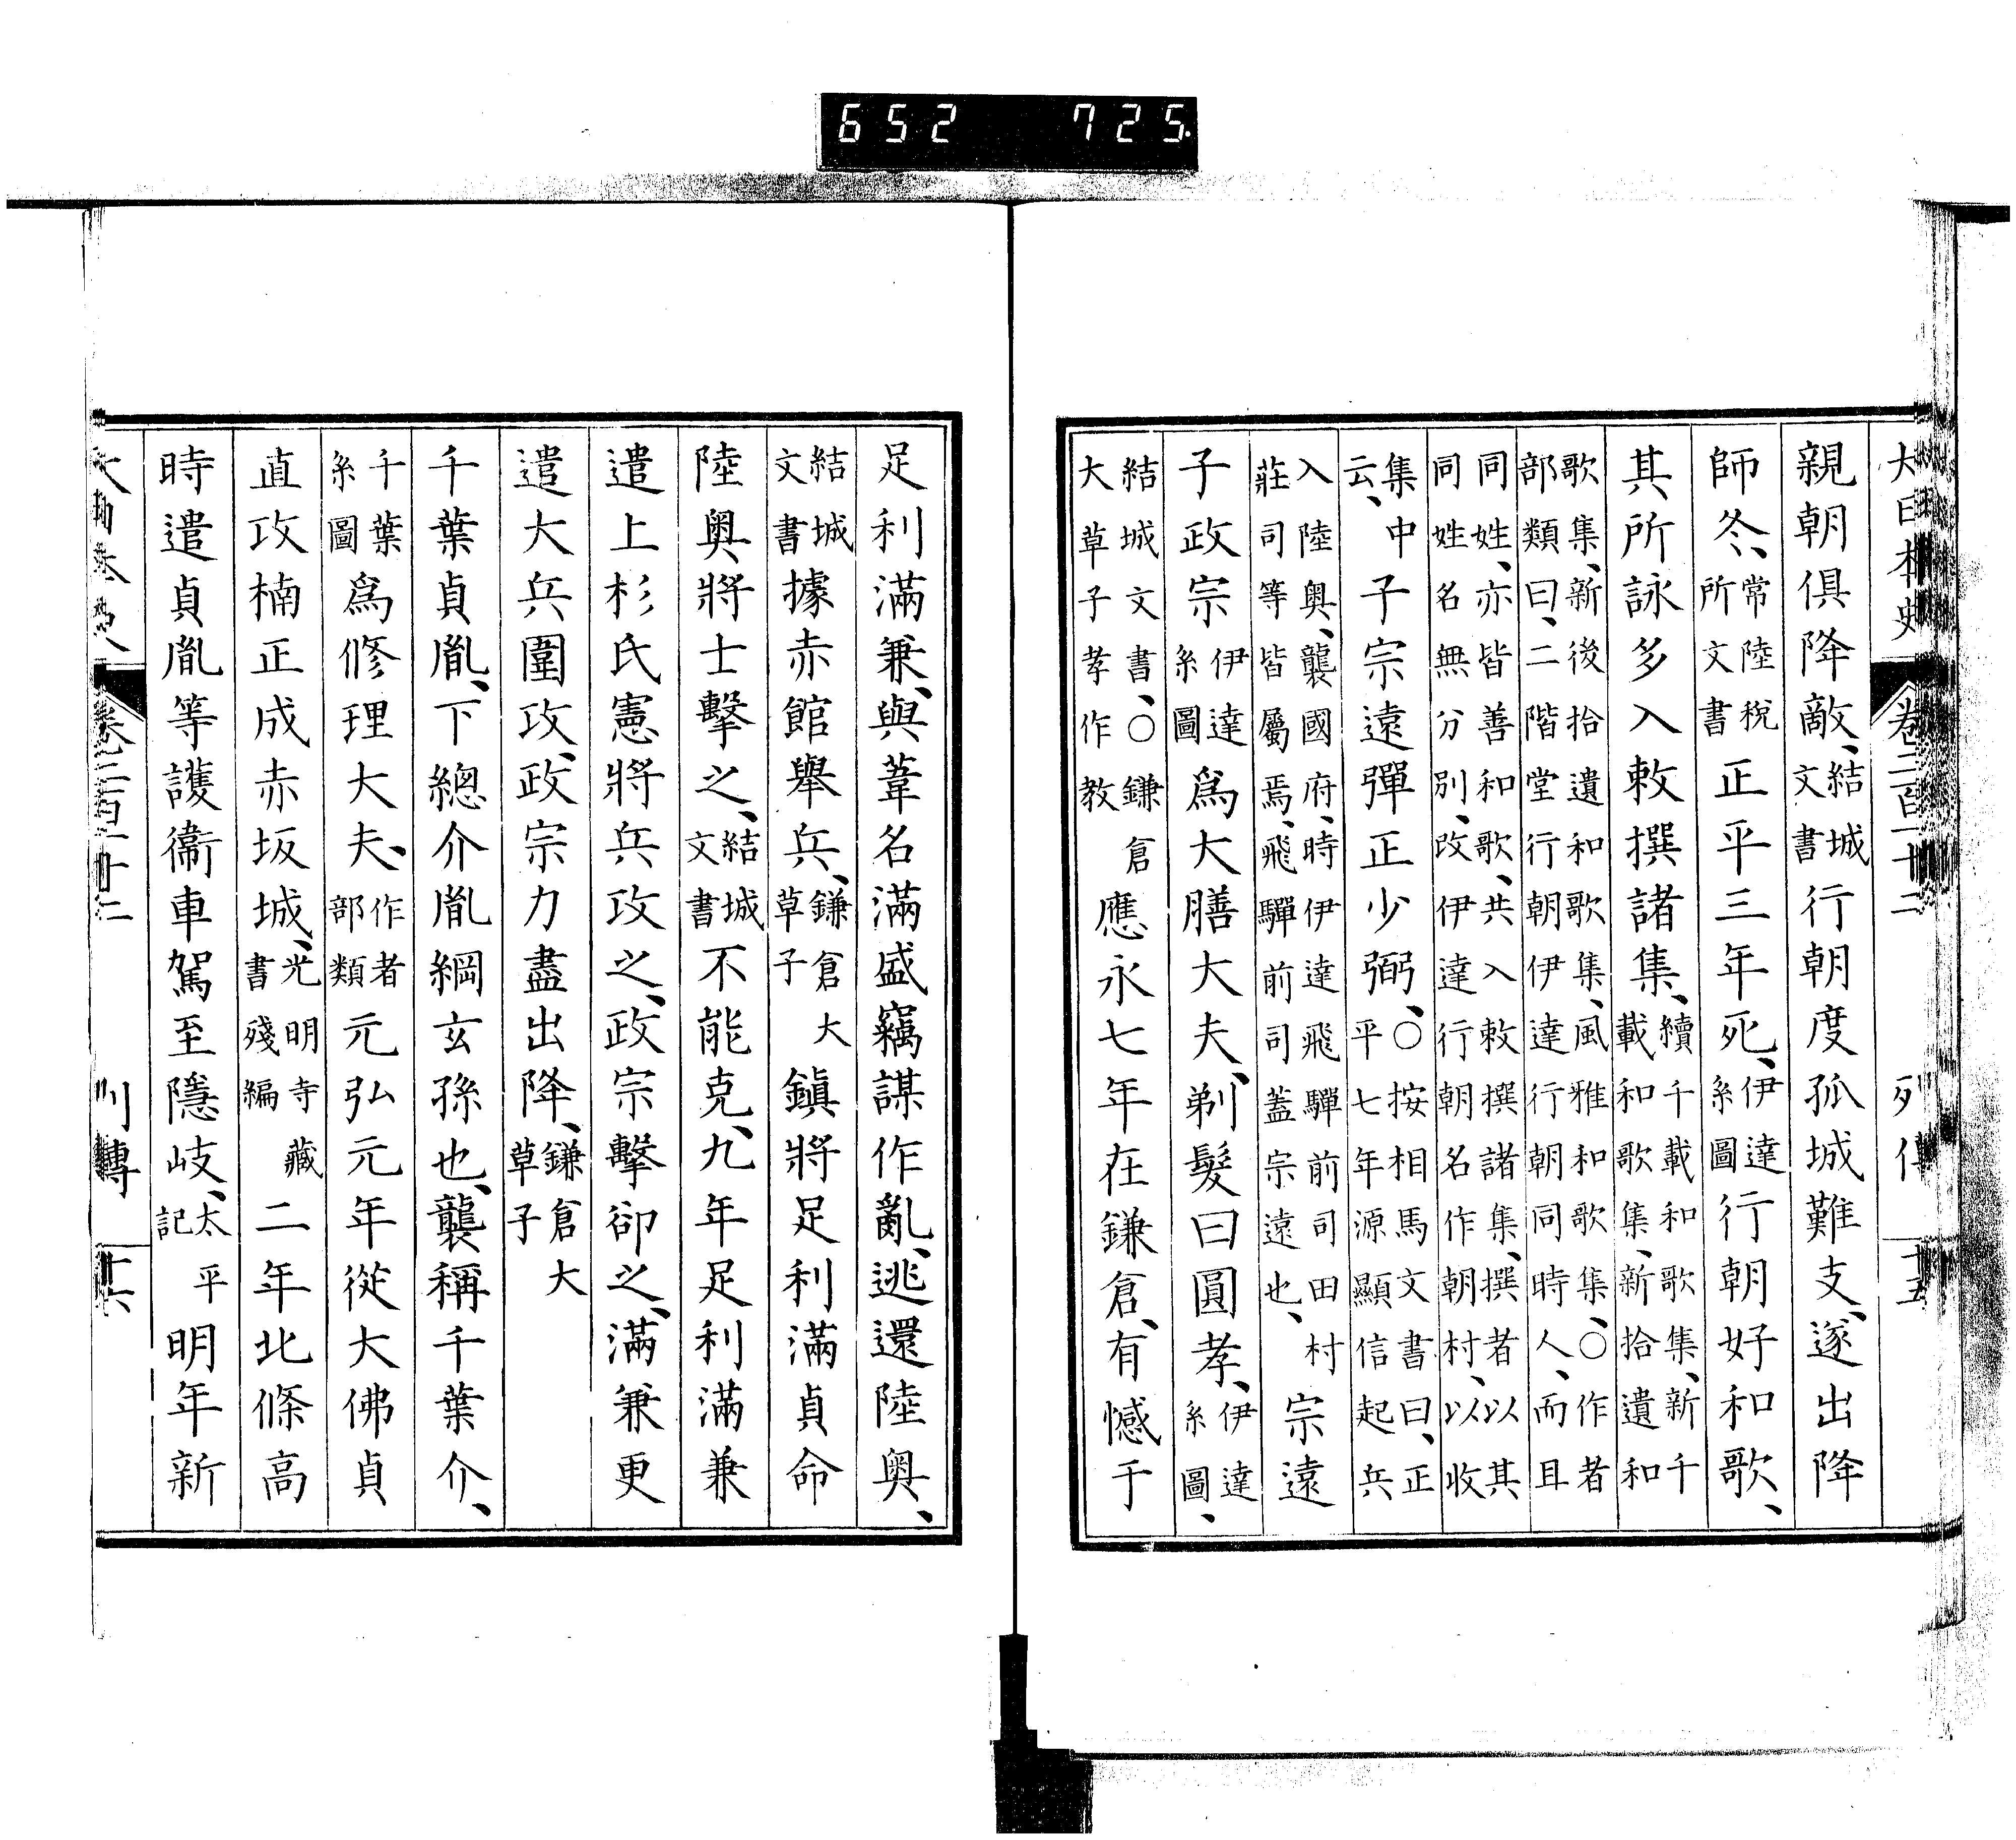 652 725
大日本史 列傳 十五
親朝俱降敵、結城文書行朝度孤城難支、遂出降
師冬、常陸稅所文書正平三年死、伊達系圖行朝好和歌、
其所詠多入敕撰諸集、續千載和歌集、新千載和歌集、新拾遺和
歌集、新後拾遺和歌集、風雅和歌集、○作者部類曰、二階堂行朝伊達行朝同時人、而且
同姓、亦皆善和歌、共入敕撰諸集、撰者以其同姓名無分別、改伊達行朝名作朝村、以收
集云、中子宗遠彈正少弼、○按相馬文書曰、正平七年源顯信起兵
入陸奧、襲國府、時伊達飛驒前司田村莊司等皆屬焉、飛驒前司蓋宗遠也、宗遠
子政宗伊達系圖爲大膳大夫、剃髮曰圓孝、伊達系圖、
結城文書、○鎌倉大草子孝作教應永七年在鎌倉、有憾于
足利滿兼、與葦名滿盛竊謀作亂、逃還陸奧、
結城文書據赤館舉兵、鎌倉大草子鎮將足利滿貞命
陸奧將士擊之、結城文書不能克、九年足利滿兼
遣上杉氏憲將兵攻之、政宗擊卻之、滿兼更
遣大兵圍攻、政宗力盡出降、鎌倉大草子
千葉貞胤、下總介胤綱玄孫也、襲稱千葉介、
千葉系圖爲修理大夫、作者部類元弘元年從大佛貞
直攻楠正成赤坂城、光明寺藏書殘編二年北條高
時遣貞胤等護衞車駕至隱岐、太平記明年新
大日本史 列傳 十六